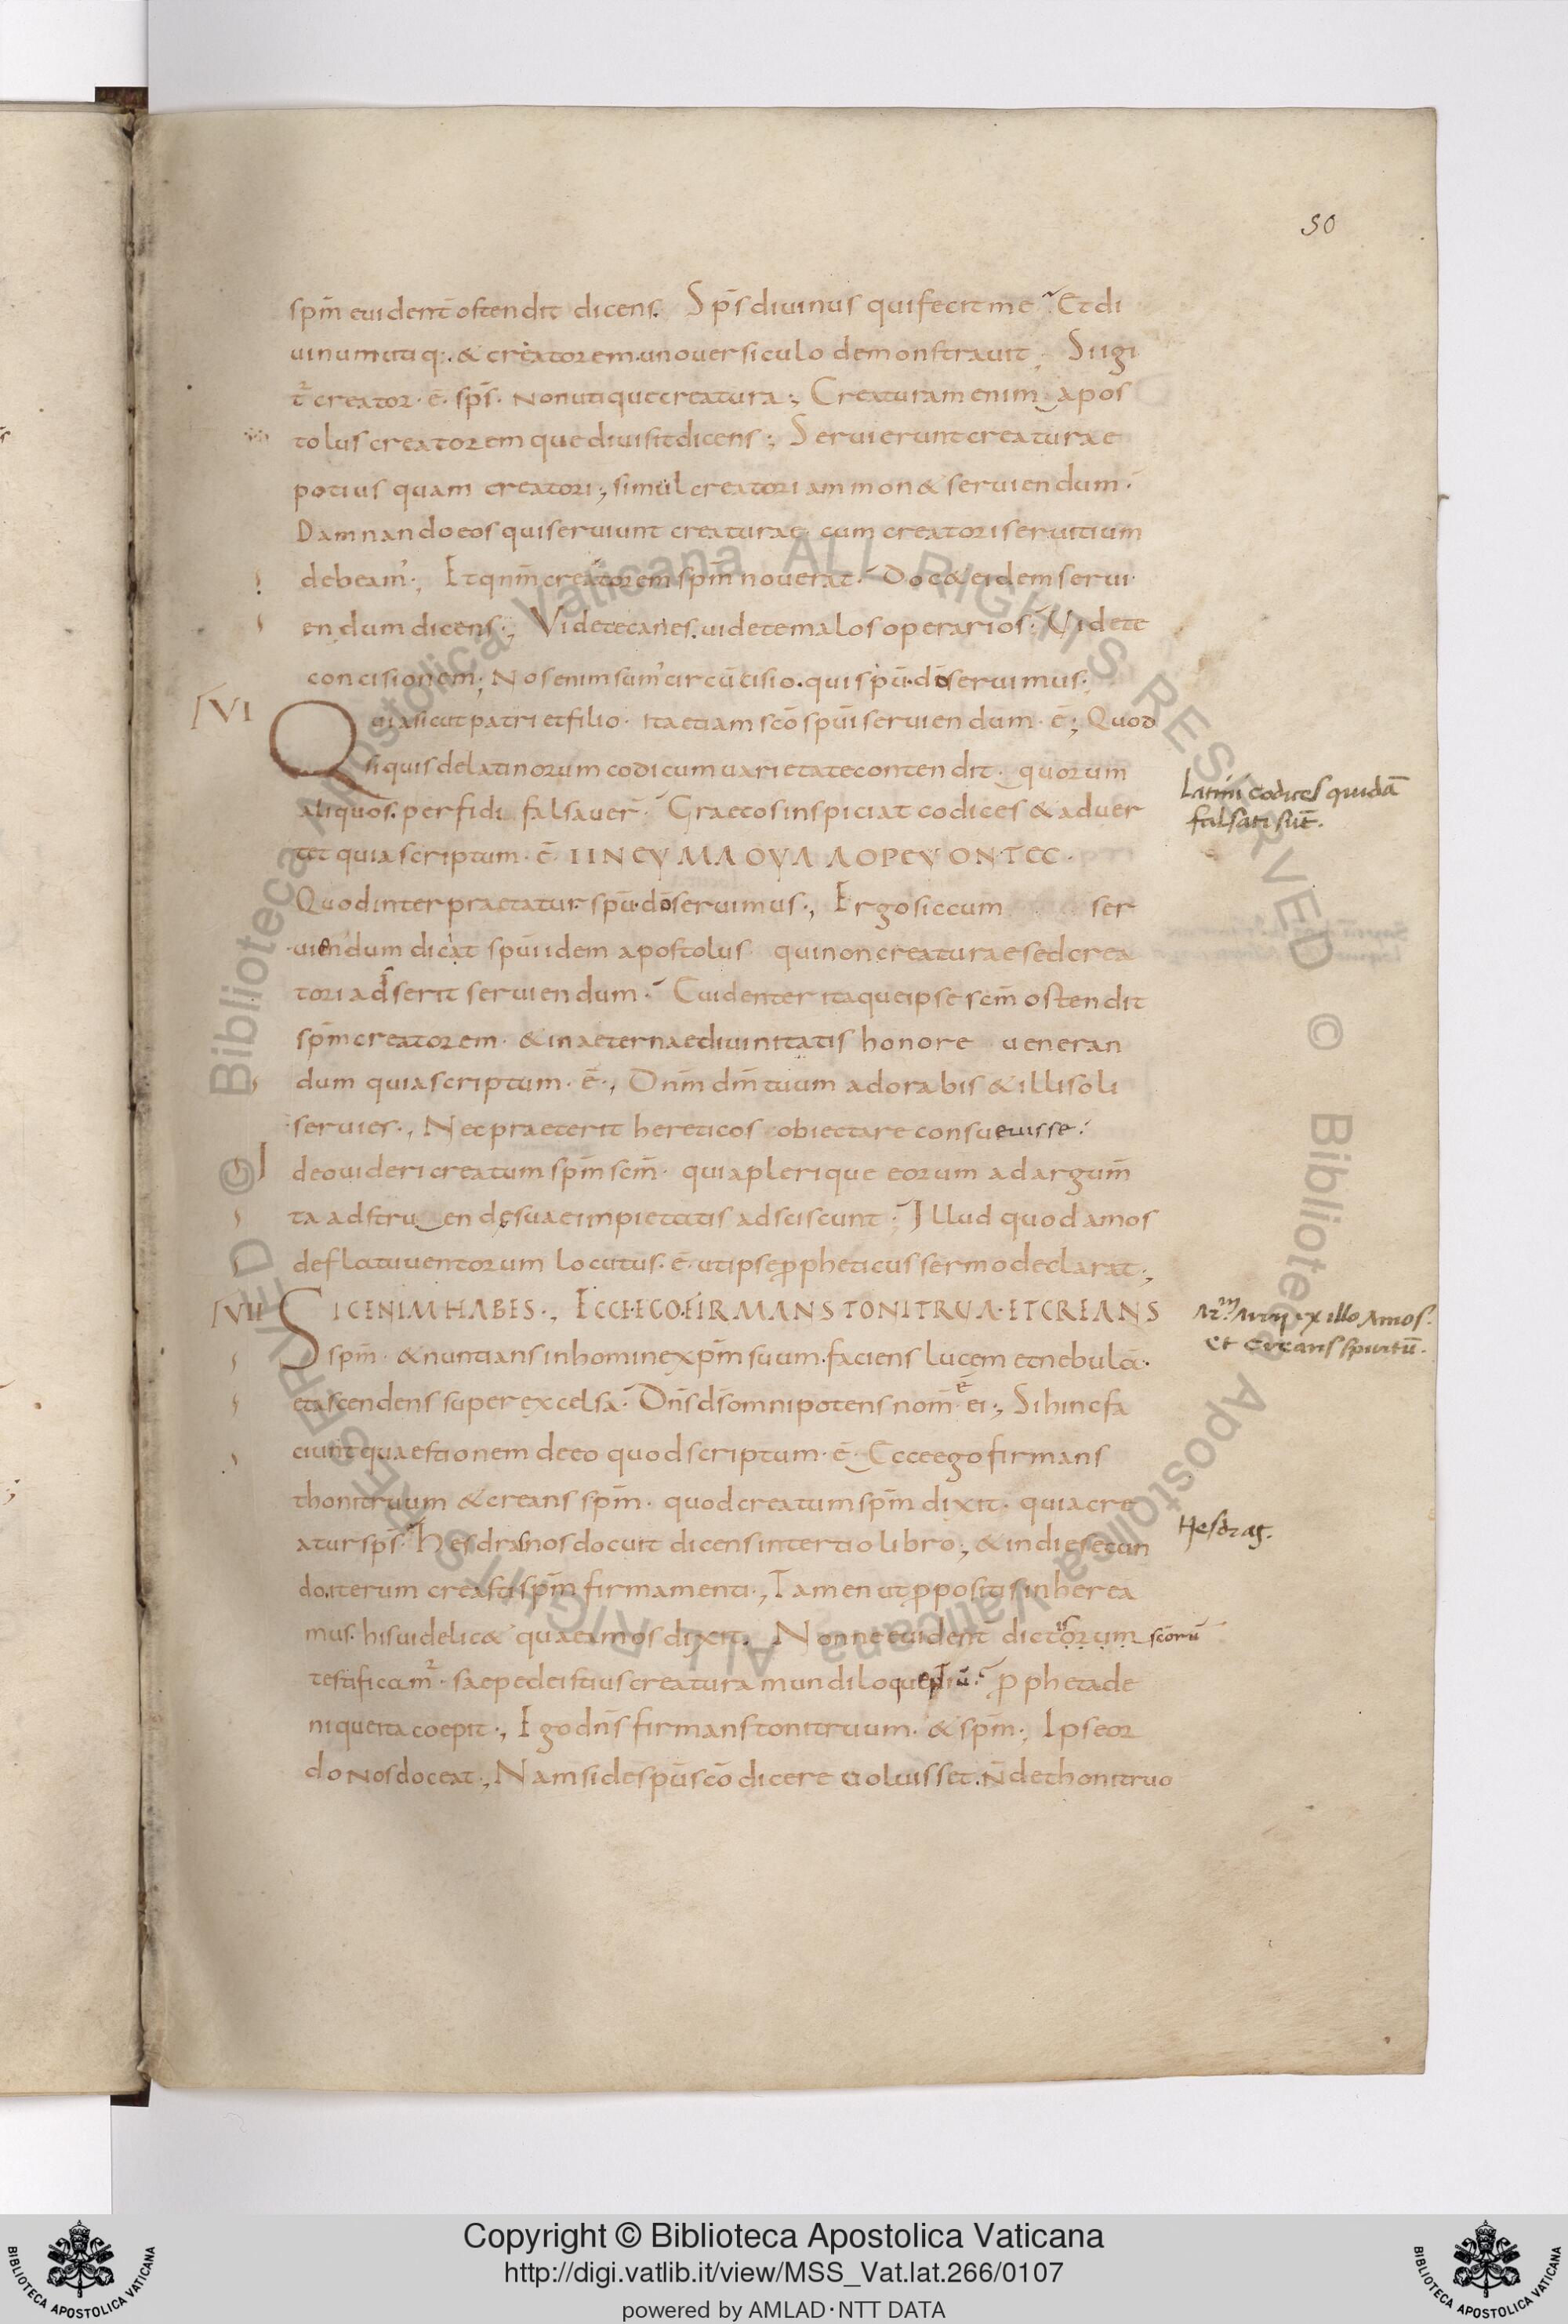 50
spm̄ euident̄ ostendit dicens. Sps̄ diuinus qui fecit me Et di
uinum utiq:. & creatorem. uno uersiculo demonstrauit; Si igi
t̄ creator· ē· sps̄· Non utique creatura; Creaturam enim apos
tolus creatoremque diuisit dicens; Seruierunt creaturae
potius quam creatori; simul creatori ammon& seruiendum·
Damnando eos qui seruiunt creaturae cum creatori seruitium
debeam'; Et qnm̄ creatorem spm̄ nouerat· Doc& eidem serui
endum dicens; Videte canes. uidete malos operarios· Videte
concisionem; Nos enim sum' circūcisio. qui spū· dō seruimus·
VI Quia sicut patri et filio· ita etiam scō spūi seruiendum· ē; Quod
si quis de latinorum codicum uarietate contendit· quorum
aliquos. perfidi falsauer̄· Graecos inspiciat codices & aduer
Latini codices quidā
falsati sūt.
tet quia scriptum· ē· IINEYMAΘYΛΛOPEYONTEC·
Quod interpraetatur· spū· dō seruimus·, Ergo si cum ser
uiendum dicat spūi idem apostolus qui non creaturae sed crea
tori adserit seruiendum· Euidenter itaque ipse scm̄ ostendit
spm̄ creatorem· & in aeternae diuinitatis honore ueneran
dum quia scriptum· ē·, Dnm̄ dm̄ tuum adorabis & illi soli
seruies·, Nec praeterit hereticos obiectare consueuisse·
Ideo uideri creatum spm̄ scm̄· quia plerique eorum ad argum̄
ta adstruendę suae impietatis adsciscunt· Illud quod amos
de flatu uentorum locutus· ē· ut ipse ꝓpheticus sermo declarat;
VII SIC ENIM HABES·, ECCE·EGO·FIRMANS TONITRUA·ET CREANS
et Creans spiritū.
spm̄· & nuntians in hominē xp̄m suum· faciens lucem et nebulā·
et ascendens super excelsa· Dns̄ ds̄ omnipotens nom̄ ē ei·, Si hinc fa
ciunt quaestionem de eo quod scriptum· ē· Ecce ego firmans
thonitruum & creans spm̄· quod creatum spm̄ dixit· quia cre
atur sps̄· Hesdras nos docuit dicens in tertio libro; & in die secun
Hesdras.
do iterum creasti spm̄ firmamenti·, Tamen ut ꝓpositis inherea
mus· his uidelic& quae amos dixit. Nonne euident̄ dictorum us scōrū
testificam̄· saepe de istius creatura mundi loquentiū· ꝓpheta de
nique ita coepit·, Ego dns̄ firmans tonitruum· & spm̄·, Ipse or
do nos doceat·, Nam si de spū scō dicere uoluisset. N̄ de thonitruo
Copyright © Biblioteca Apostolica Vaticana
http://digi.vatlib.it/view/MSS_Vat.lat.266/0107
powered by AMLAD·NTT DATA
BIBLIOTECA APOSTOLICA VATICANA
BIBLIOTECA APOSTOLICA VATICANA
Biblioteca Apostolica Vaticana ALL RIGHTS RESERVED © Biblioteca Apostolica Vaticana ALL RIGHTS RESERVED ©